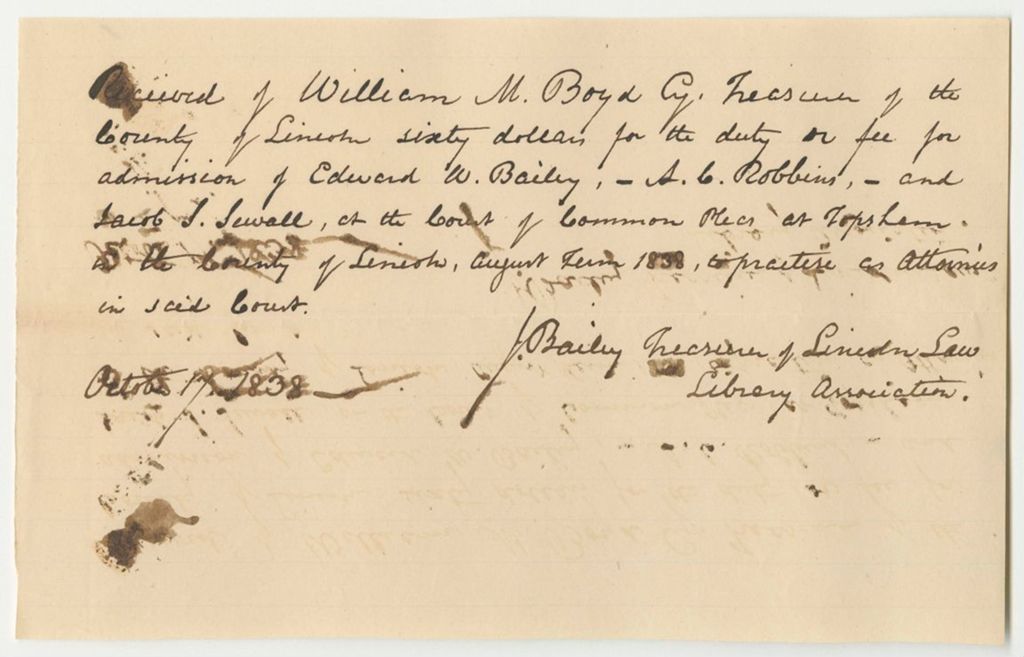 Received of William M. Boyd Cy. Treasurer of the
County of Lincoln sixty dollars for the duty or fee for
admission of Edward W. Bailey, – A. C. Robbins, – and
Jacob S. Sewall, at the Court of Common Pleas at Topsham
in the County of Lincoln, August Term 1838, to practise as Attornies
in said Court.
J. Bailey Treasurer of Lincoln Law
Library Association.
Octobr 17, 1838